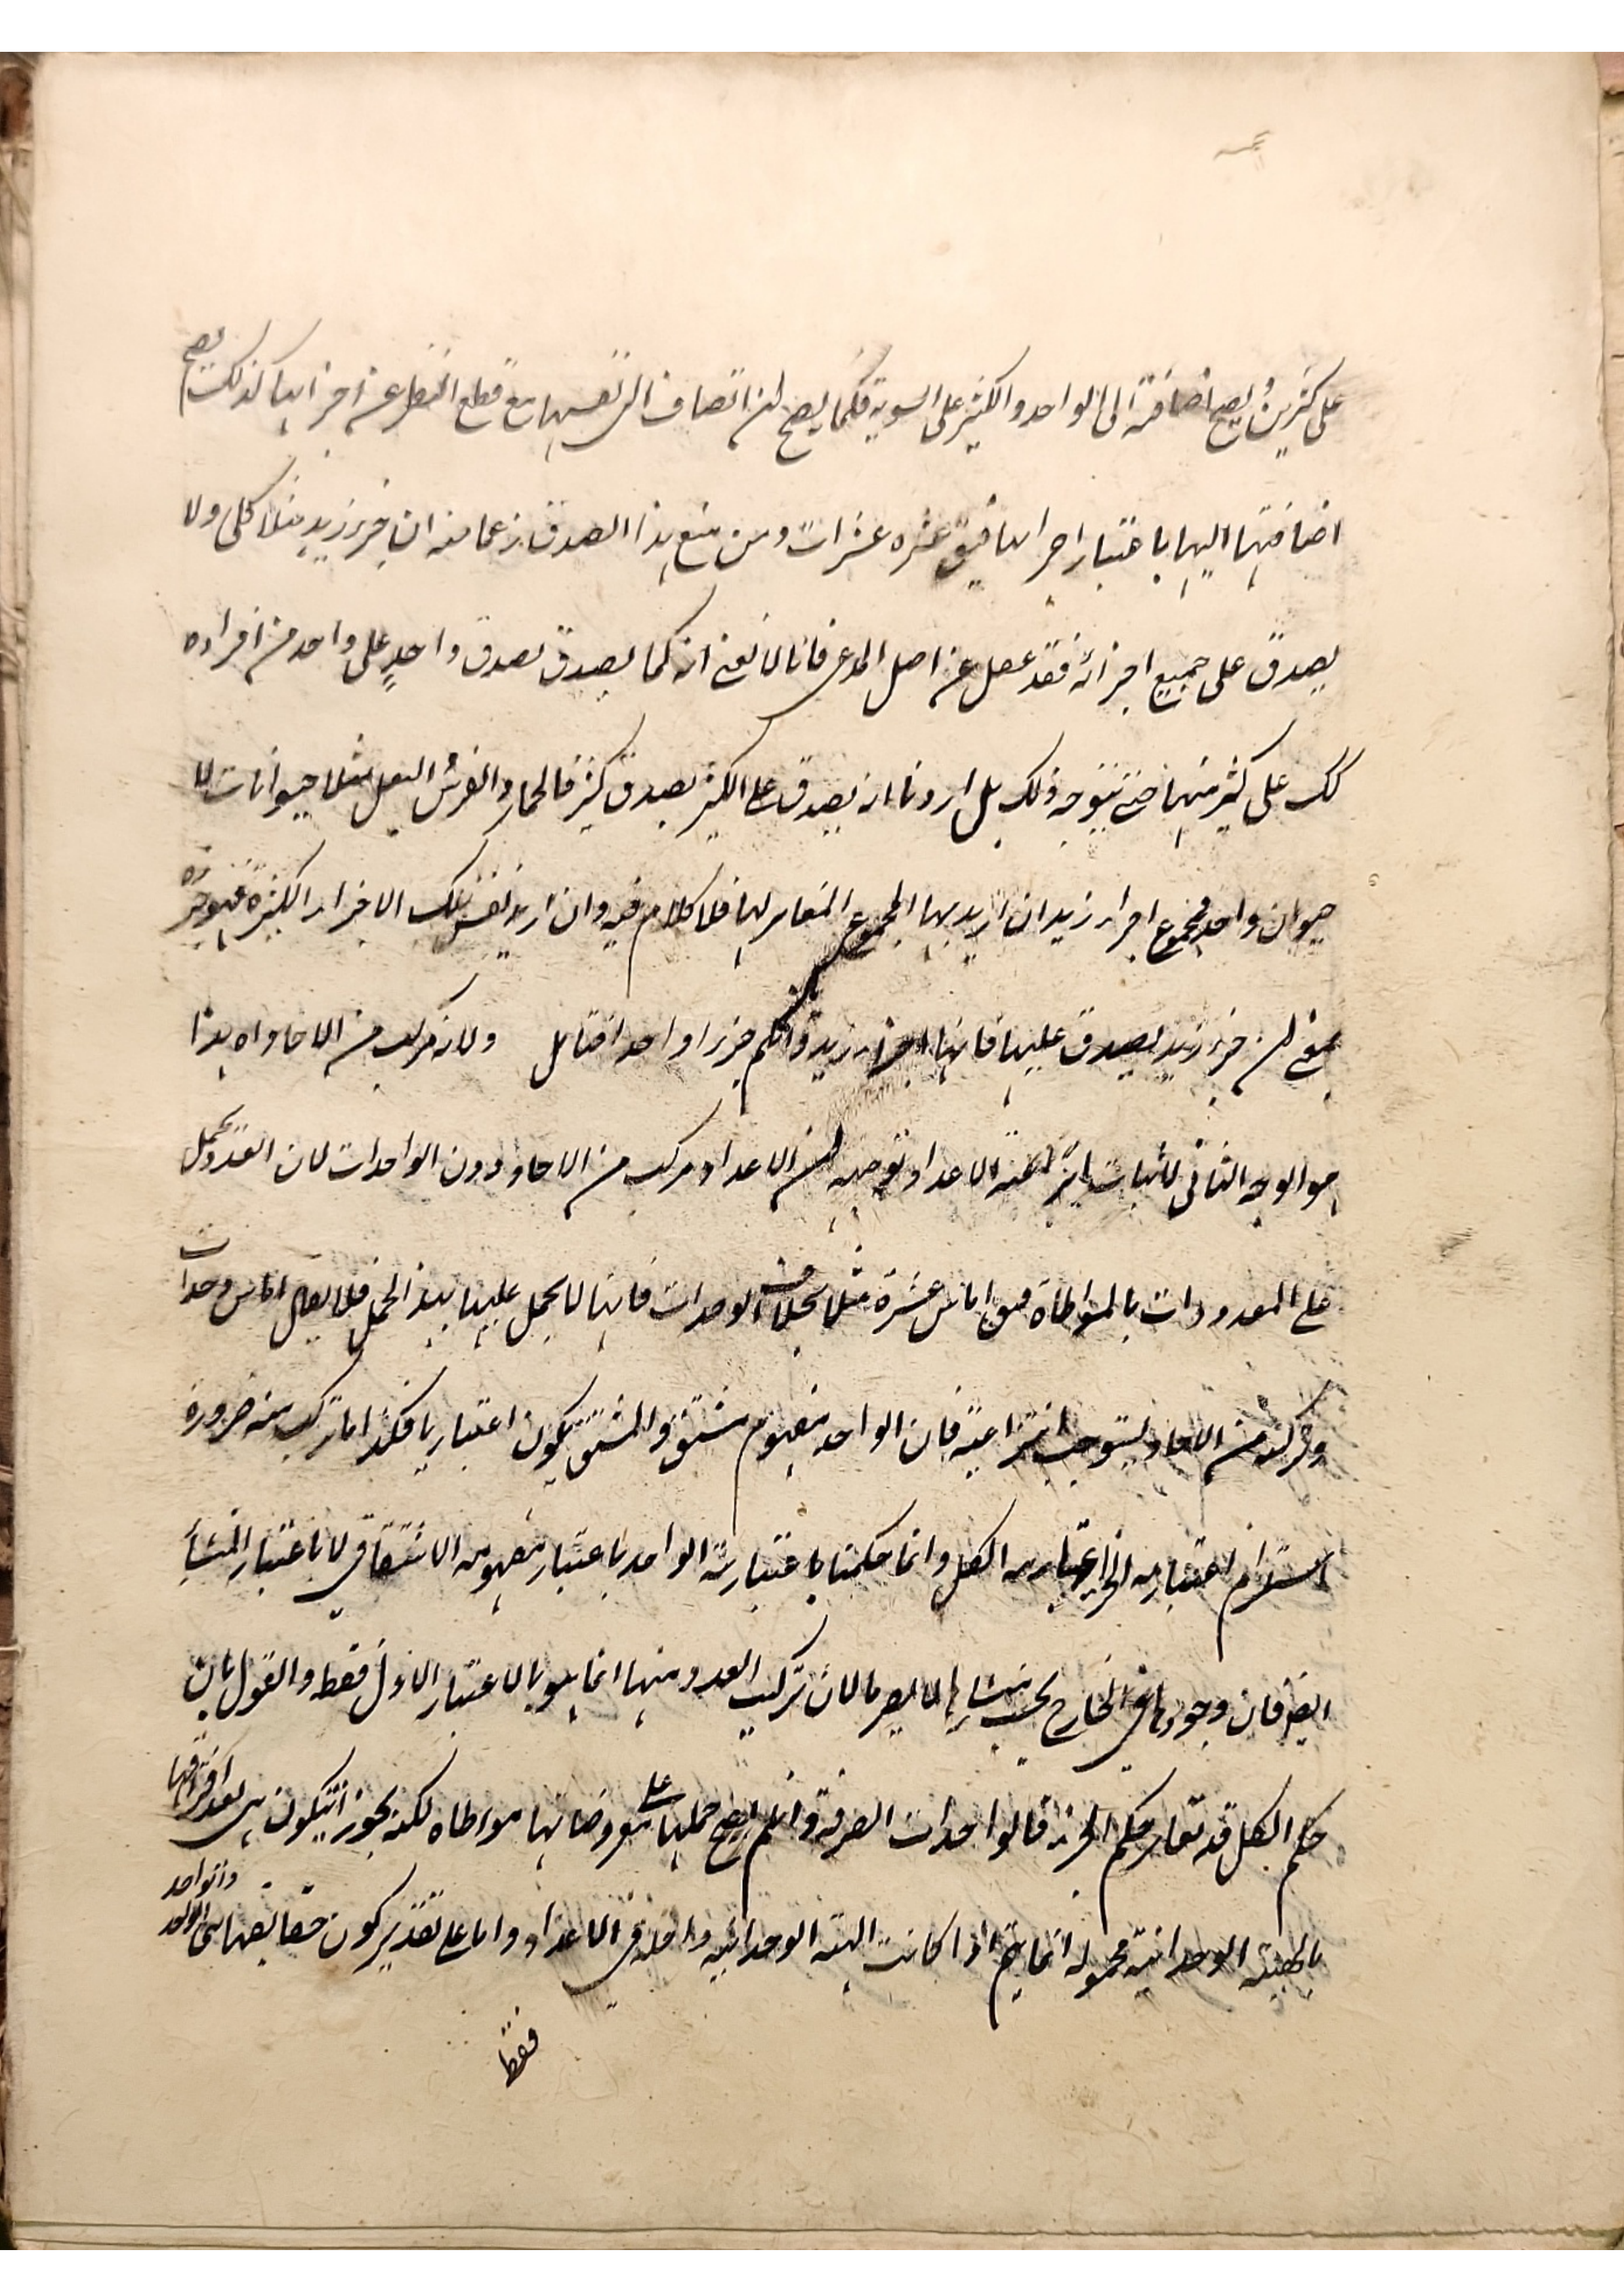 على كثيرين يصح اضافته الى الواحد والكثير على السوية فكما يصح ان تضاف الى نفسها مع قطع النظر عن اجزائها كذلك يصح
اضافتها اليها باعتبار اجزائها فيق عشرة عشرات ومن منع هذا الصدق زعما منه ان جزء زيد مثلا كلى ولا
يصدق على جميع اجزائه فقد غفل عن اصل المدعى فانا لا نعنى انه كما يصدق بصدق واحد على واحد من افراده
كك على كثير منها حتى يتوجه ذلك بل اردنا انه يصدق على الكثير بصدق كثير فالحمار والفرس والبغل مثلا حيوانات لا
حيوان واحد فمجموع اجزاء زيد ان اريد بها المجموع المغاير لها فلا كلام فيه وان اريد نفس تلك الاجزاء الكثيرة فهو
نمنع ان جزء زيد يصدق عليها فانها اجزاء زيد وان لم جزءا واحدا فتامل ولانه مركب من الاحاد اه هذا
هو الوجه الثانى لاثبات انتزاعية الاعداد توجيهه ان الاعداد مركب من الاحاد دون الواحدات لان العدد يحمل
على المعدودات بالمواطاة فيق اناس عشرة مثلا بخلاف الوحدات فانها لا يحمل عليها بهذا الحمل فلا يقال اناس وحدات
وتركبه من الاحاد يستوجب انتزاعيته فان الواحد مفهوم مشتق والمشتق يكون اعتباريا فكذا ما تركب منه ضرورة
استلزام اعتبارية الجزء اعتبارية الكل وانما حكمنا باعتبارية الواحد باعتبار مفهومه الاشتقاقى لا باعتبار المنشأ
ايضا فان وجودها فى الخارج بحسب منشائها لا يضرنا لان تركيب العدد منها انما هو بالاعتبار الاول فقط والقول بان
حكم الكل قد تغاير حكم الجزء فالواحدات الصرفة وان لم يصح حملها على معروضاتها مواطاة لكنه يجوز ان يكون هى بعد اقترانها
بالهيئة الوحدانية محمولة انما يتم اذا كانت الهيئة الوحدانية داخلة فى الاعداد واما على تقدير كون حقايقها
فقط